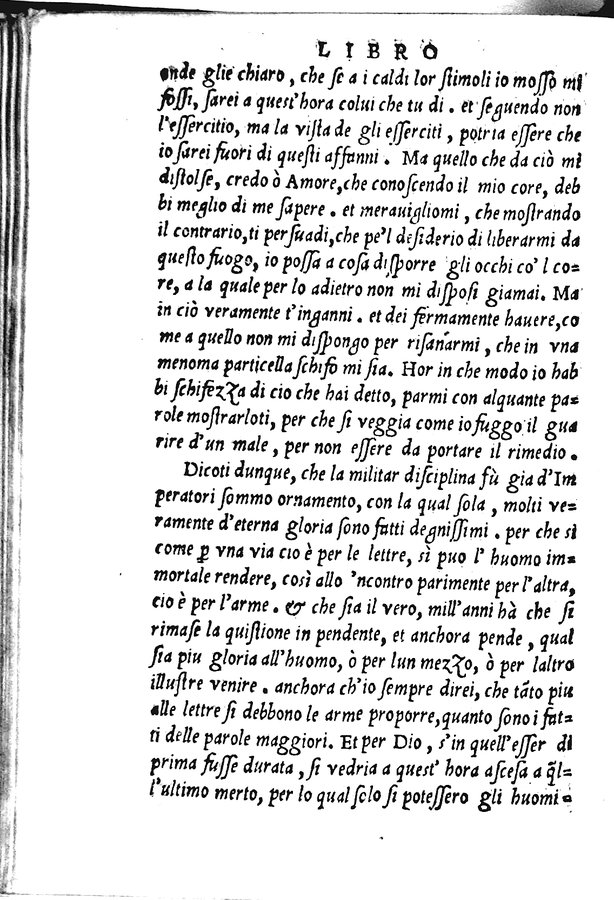 LIBRO
onde glie chiaro, che ſe a i caldi lor ſtimoli io moſſo mi
foſſi, ſarei a queſt'hora colui che tu di. et ſeguendo non
l'eſſercitio, ma la viſta de gli eſſerciti, potria eſſere che
io ſarei fuori di queſti affanni. Ma quello che da ciò mi
diſtolſe, credo ò Amore, che conoſcendo il mio core, deb
bi meglio di me ſapere. et merauigliomi, che moſtrando
il contrario, ti perſuadi, che pe'l deſiderio di liberarmi da
queſto fuogo, io poſſa a coſa diſporre gli occhi co'l co=
re, a la quale per lo adietro non mi diſpoſi giamai. Ma
in ciò veramente t'inganni. et dei fermamente hauere, co
me a quello non mi diſpongo per riſanarmi, che in vna
menoma particella ſchifo mi ſia. Hor in che modo io hab
bi ſchifezza di cio che hai detto, parmi con alquante pa=
role moſtrarloti, per che ſi veggia come io fuggo il gua
rire d'un male, per non eſſere da portare il rimedio.
Dicoti dunque, che la militar diſciplina fù gia d'Im
peratori ſommo ornamento, con la qual ſola, molti ve=
ramente d'eterna gloria ſono fatti degniſſimi. per che sì
come ꝑ vna via cio è per le lettre, sì puo l'huomo im=
mortale rendere, così allo 'ncontro parimente per l'altra,
cio è per l'arme. & che ſia il vero, mill'anni hà che ſi
rimaſe la quiſtione in pendente, et anchora pende, qual
ſia piu gloria all'huomo, ò per lun mezzo, ò per laltro
illuſtre venire. anchora ch'io ſempre direi, che tãto piu
alle lettre ſi debbono le arme proporre, quanto ſono i fat=
ti delle parole maggiori. Et per Dio, s'in quell'eſſer di
prima fuſſe durata, ſi vedria a queſt'hora aſceſa a q̃l=
l'ultimo merto, per lo qual ſolo ſi poteſſero gli huomi=